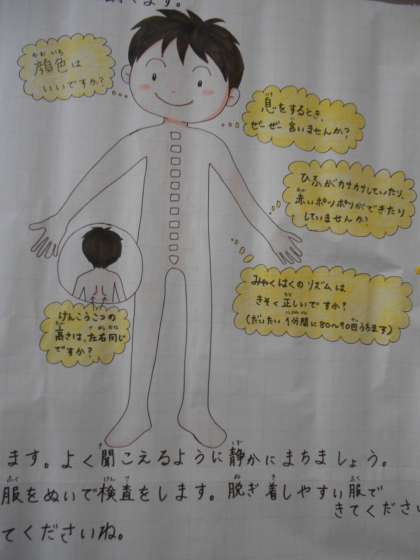 顔色は
いいですか?
息をするとき、
ぜーぜー言いませんか?
ひふがカサカサしていたり、
赤いポツポツができたり
していませんか?
みゃくはくのリズムは
きそく正しいですか?
(だいたい1分間に80~90回うちます)
けんこうこつの
高さは、左右同じ
ですか?
ます。よく聞こえるように静かにまちましょう。
服をぬいで検査をします。脱ぎ着しやすい服で
きてください
てくださいね。